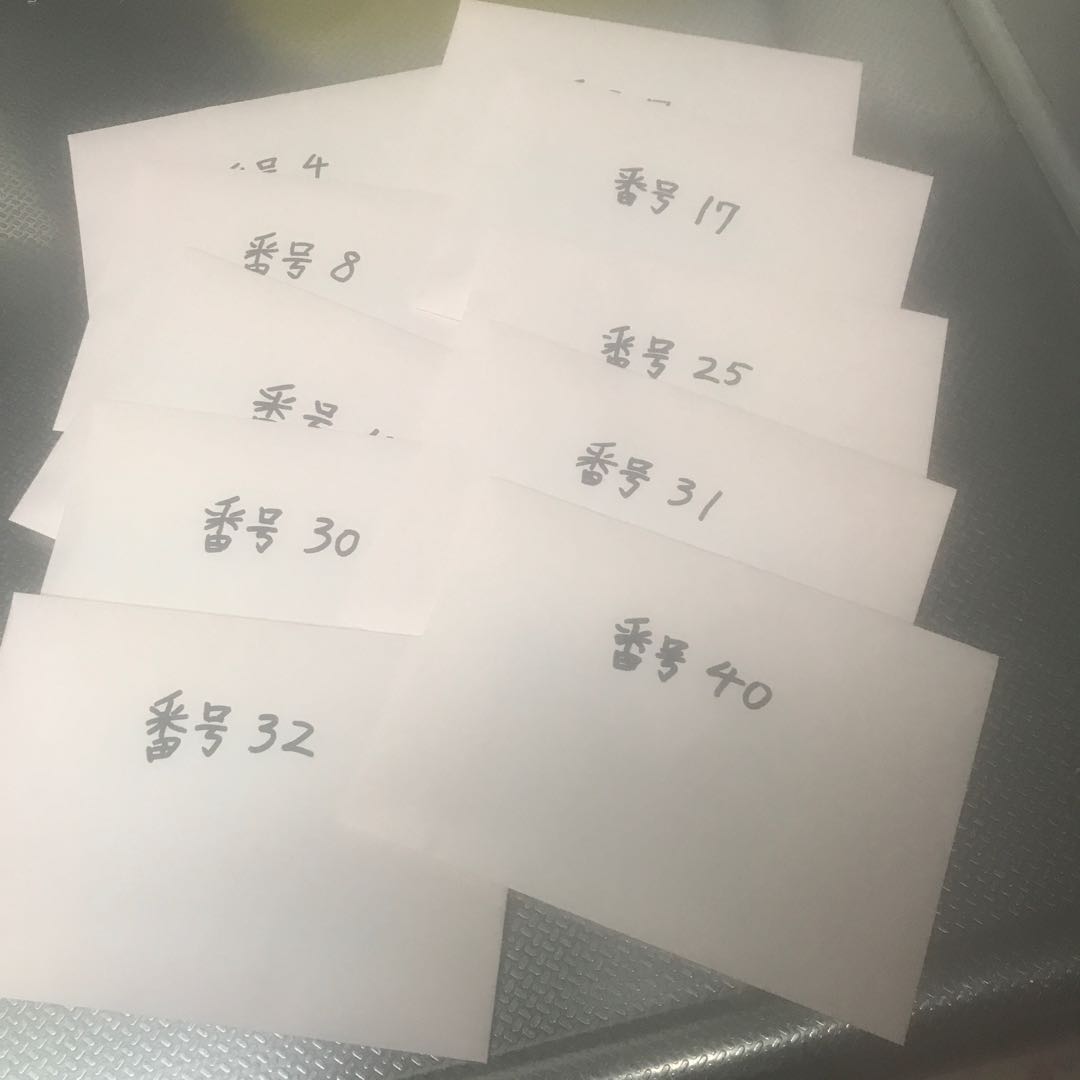 番号 4
番号 17
番号 8
番号 25
番号
番号 31
番号 30
番号 40
番号 32